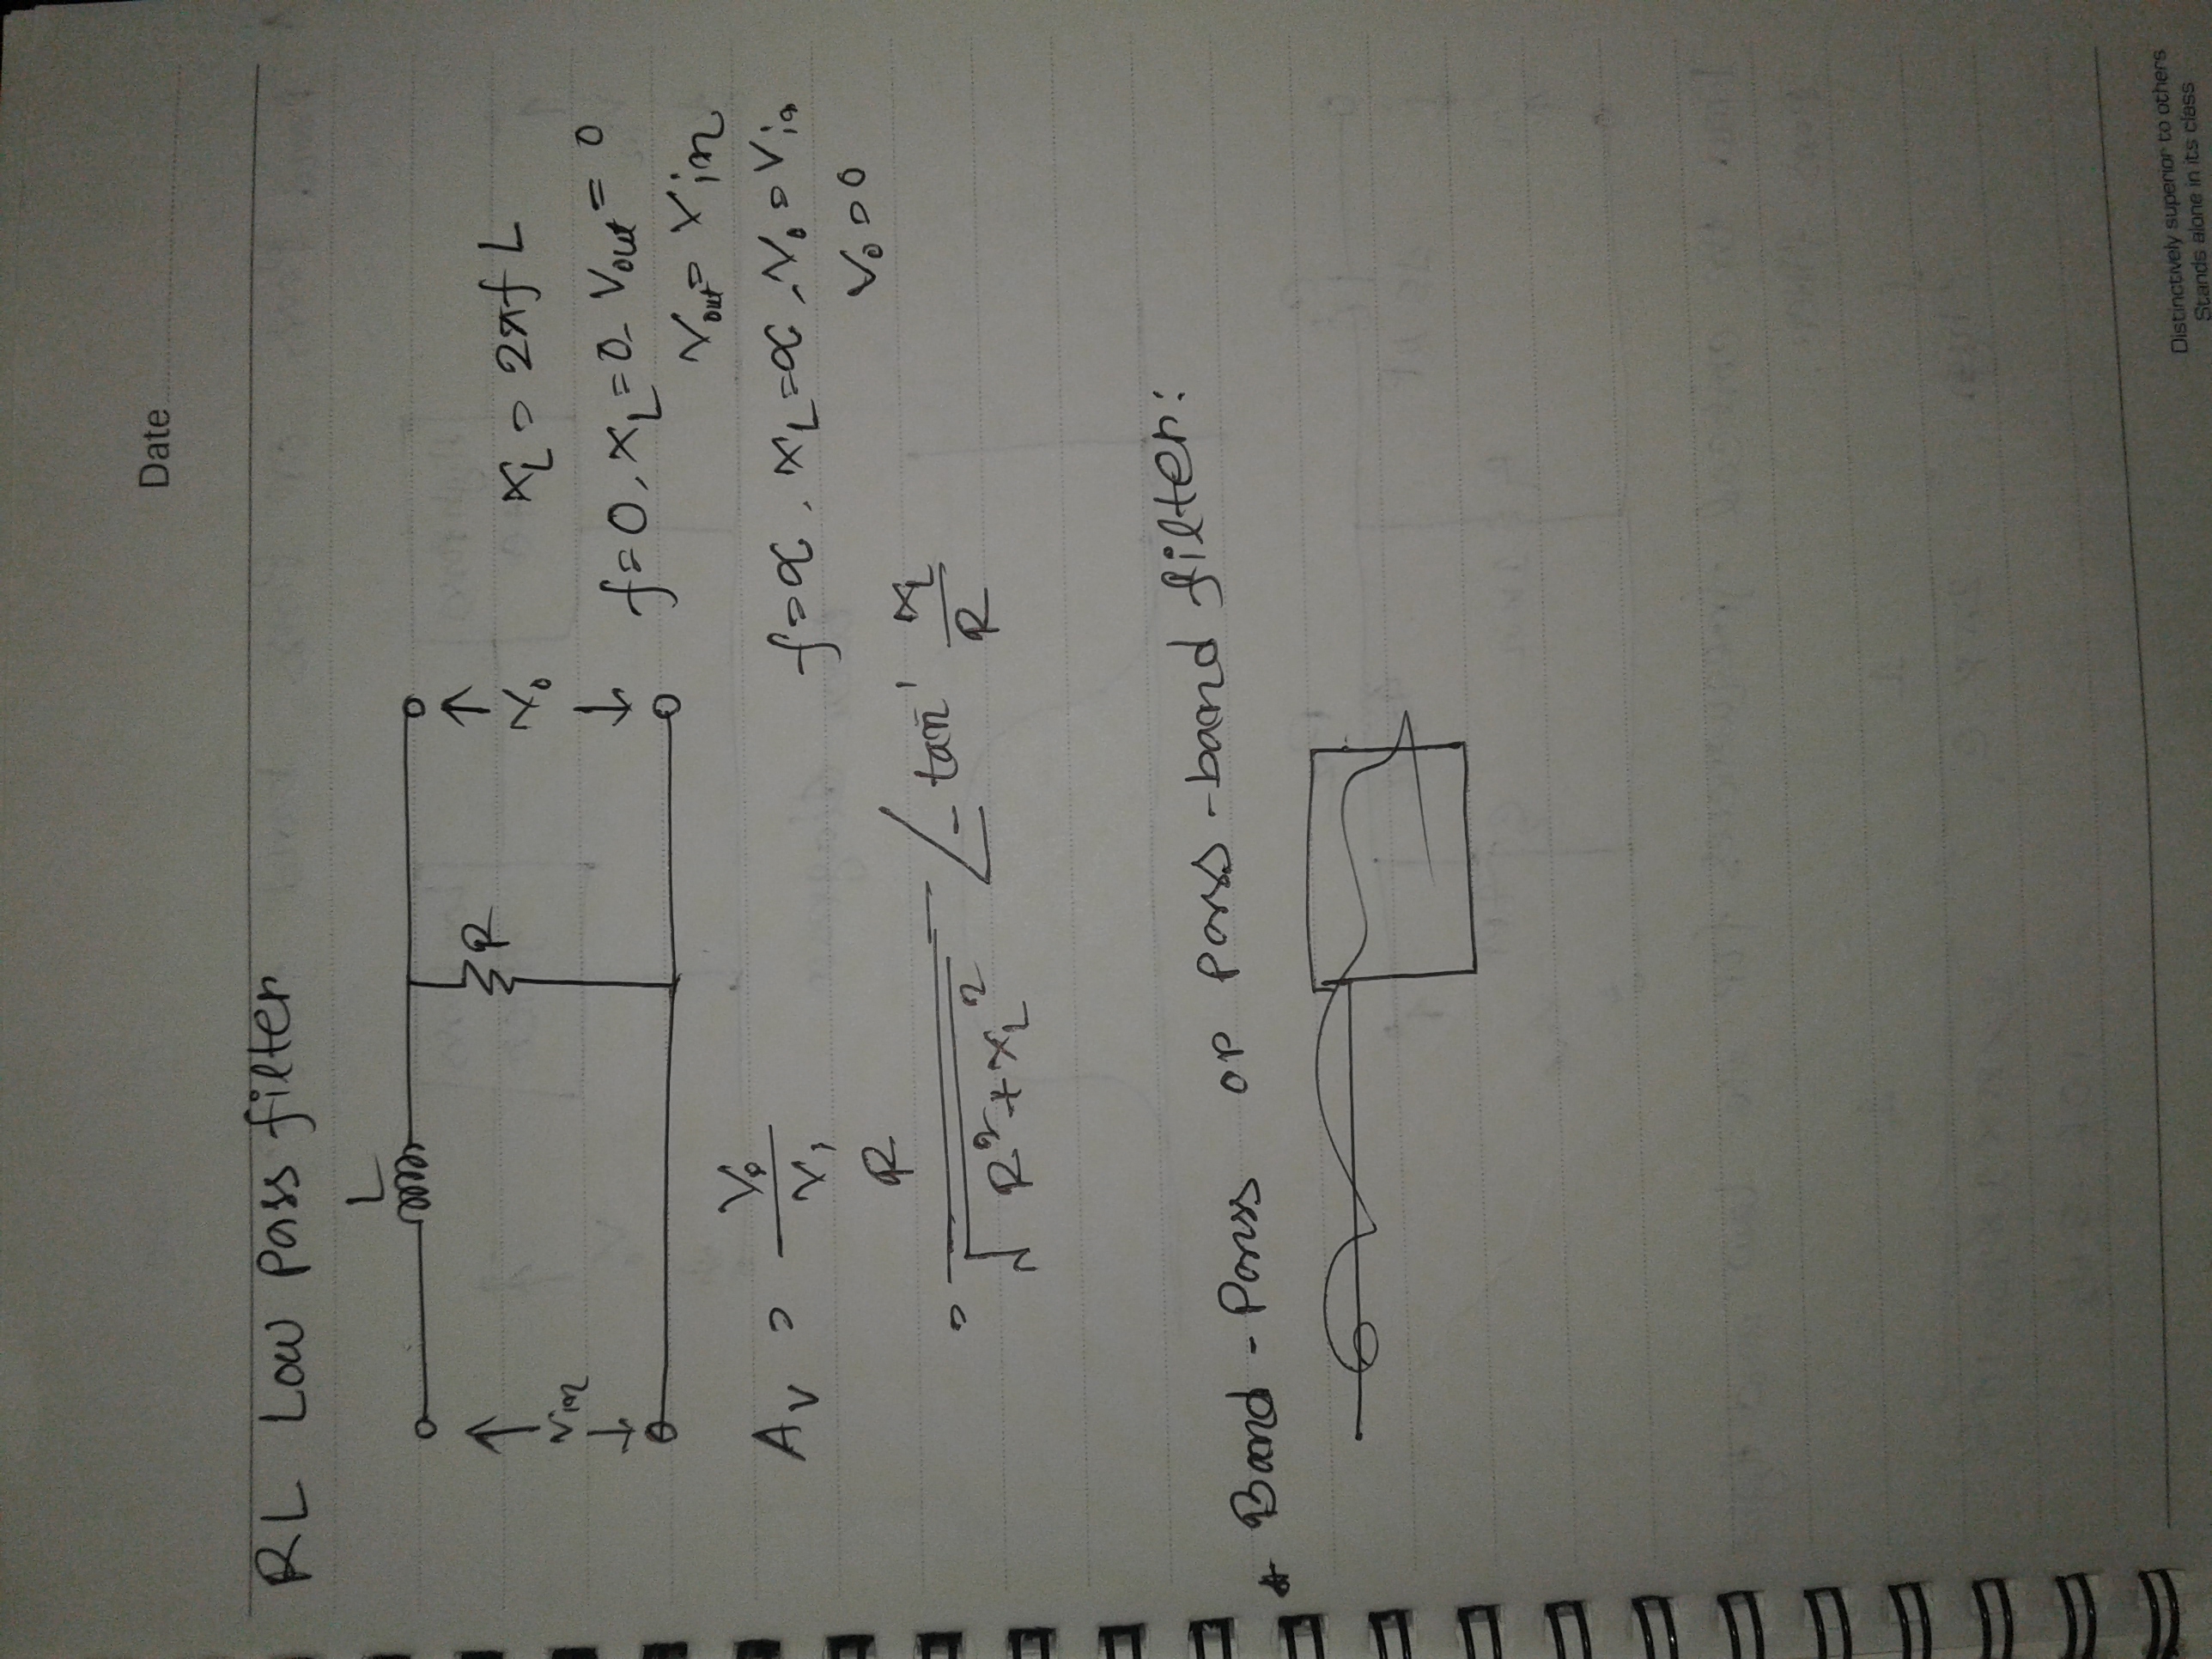 Date
RL Low pass filter
L
R
Vin
V₀
X_L = 2πfL
f=0, X_L=0, Vout = 0
Vout = Vin
f=∝, X_L=∝, V₀=Vin
V₀=0
A_V = V₀/V₁
= R/√(R²+X_L²) ∠-tan⁻¹ X_L/R
* Band-Pass or pass-band filter:
Distinctively superior to others
Stands alone in its class